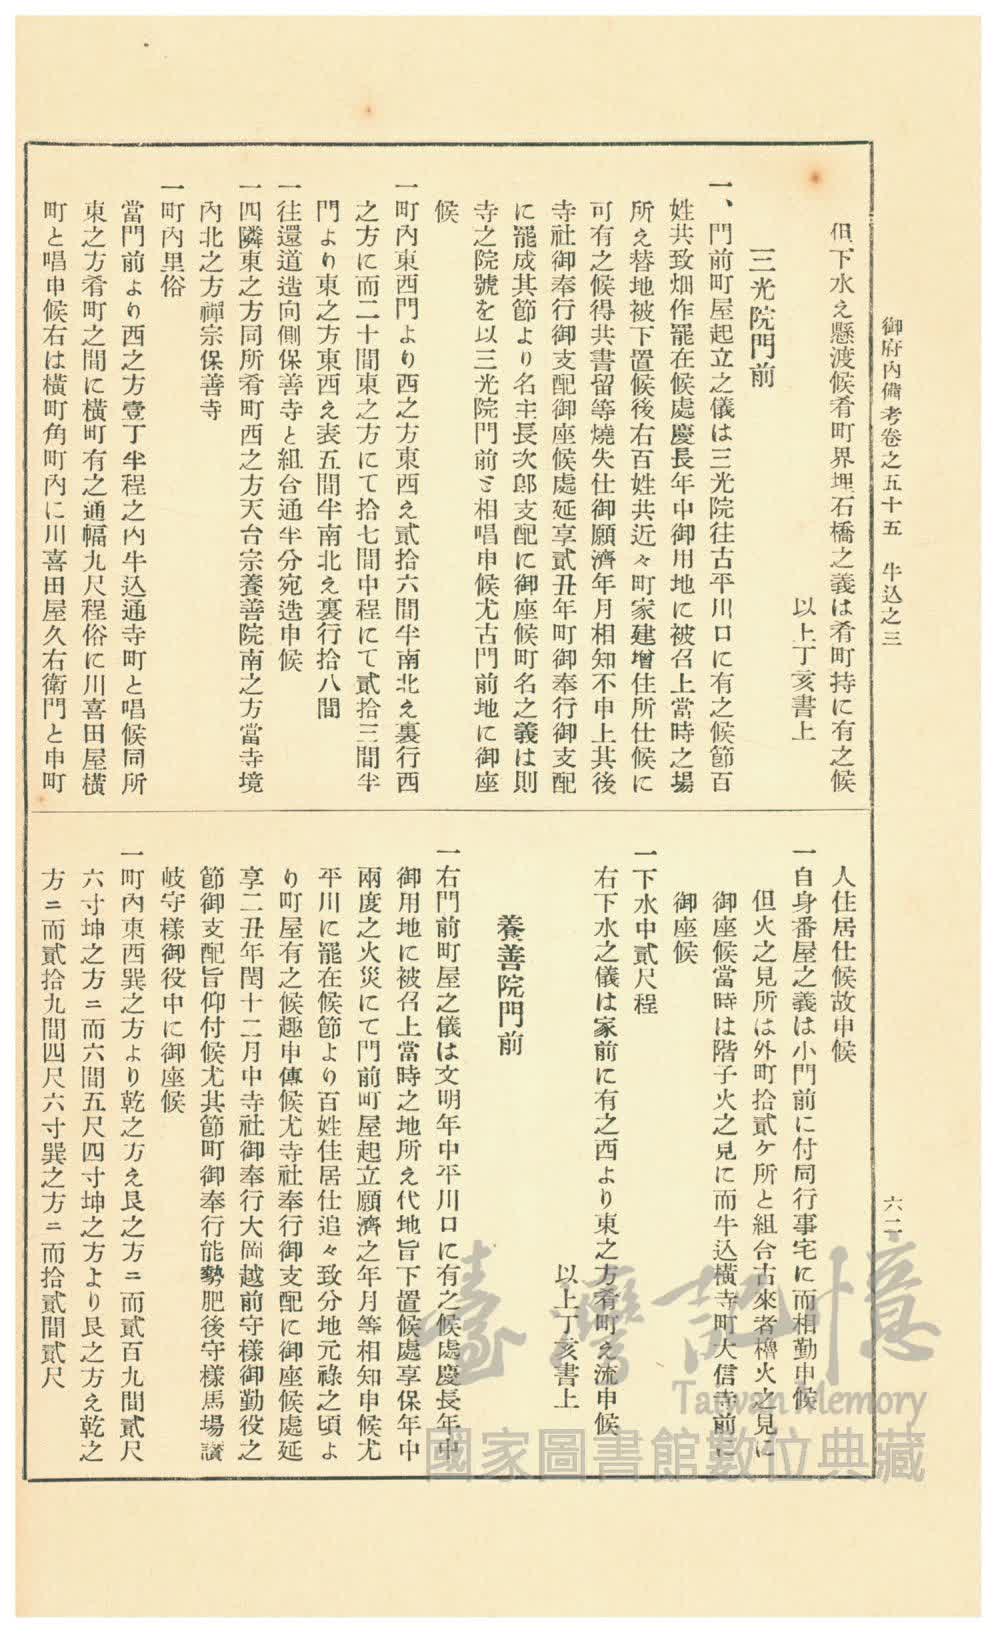 御府內備考卷之五十五　牛込之三
六二
但下水え懸渡候肴町界埋石橋之義は肴町持に有之候
以上丁亥書上
三光院門前
一、門前町屋起立之儀は三光院往古平川口に有之候節百
姓共致畑作罷在候處慶長年中御用地に被召上當時之場
所え替地被下置候後右百姓共近々町家建增住所仕候に
可有之候得共書留等燒失仕御願濟年月相知不申上其後
寺社御奉行御支配御座候處延享貳丑年町御奉行御支配
に罷成其節より名主長次郎支配に御座候町名之義は則
寺之院號を以三光院門前〻相唱申候尤古門前地に御座
候
一町內東西門より西之方東西え貳拾六間半南北え裏行西
之方に而二十間東之方にて拾七間中程にて貳拾三間半
門より東之方東西え表五間半南北え裏行拾八間
一往還道造向側保善寺と組合通半分宛造申候
一四隣東之方同所肴町西之方天台宗養善院南之方當寺境
內北之方禪宗保善寺
一町內里俗
當門前より西之方壹丁半程之內牛込通寺町と唱候同所
東之方肴町之間に橫町有之通幅九尺程俗に川喜田屋橫
町と唱申候右は橫町角町內に川喜田屋久右衛門と申町
人住居仕候故申候
一自身番屋之義は小門前に付同行事宅に而相勤申候
但火之見所は外町拾貳ケ所と組合古來者櫓火之見に
御座候當時は階子火之見に而牛込橫寺町大信寺前に
御座候
一下水中貳尺程
右下水之儀は家前に有之西より東之方肴町え流申候
以上丁亥書上
養善院門前
一右門前町屋之儀は文明年中平川口に有之候處慶長年中
御用地に被召上當時之地所え代地旨下置候處享保年中
兩度之火災にて門前町屋起立願濟之年月等相知申候尤
平川に罷在候節より百姓住居仕追々致分地元祿之頃よ
り町屋有之候趣申傳候尤寺社奉行御支配に御座候處延
享二丑年閏十二月中寺社御奉行大岡越前守樣御勤役之
節御支配旨仰付候尤其節町御奉行能勢肥後守樣馬場讚
岐守樣御役中に御座候
一町內東西巽之方より乾之方え艮之方ニ而貳百九間貳尺
六寸坤之方ニ而六間五尺四寸坤之方より艮之方え乾之
方ニ而貳拾九間四尺六寸巽之方ニ而拾貳間貳尺
臺灣記憶
Taiwan Memory
國家圖書館數位典藏